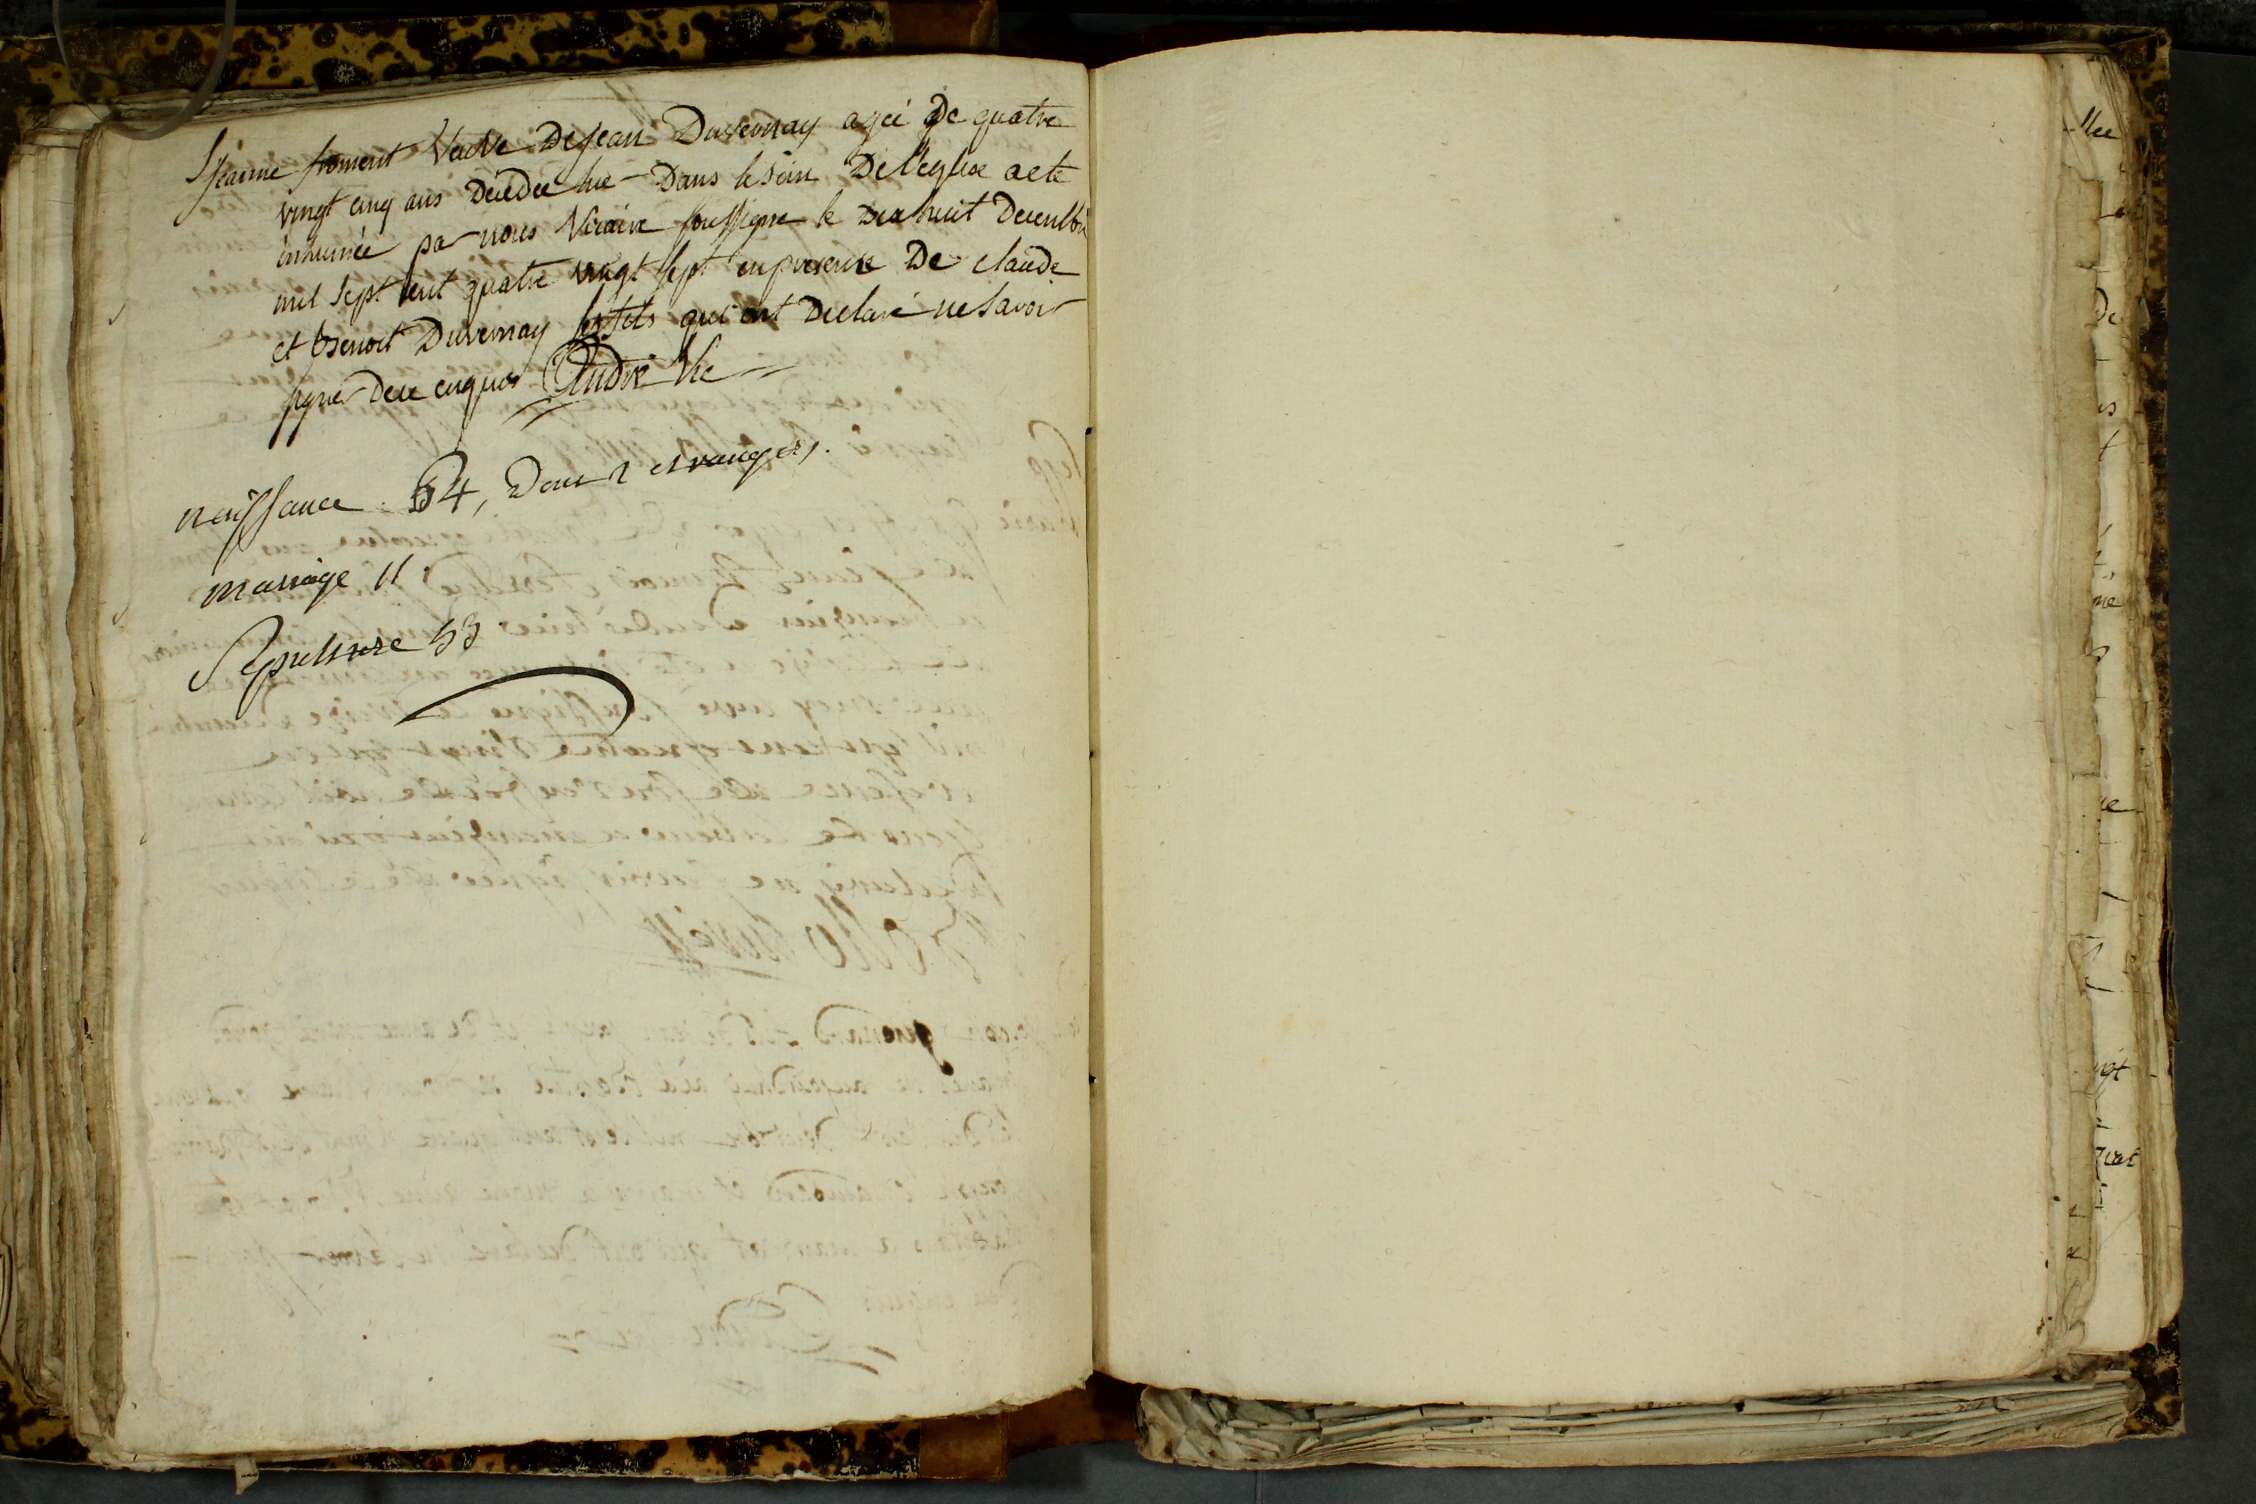 Jeanne froment Veuve De jean Duvernay agée De quatre
vingt cinq ans Decedee hie Dans le sein De l'eglise a ete
inhumée par nous Vicaire soussigné le dix huit Decembre
mil sept cent quatre vingt sept en presence De claude
et Benoit Duvernay ses fils qui ont declaré ne savoir
signer de ce enquis André Vic
naissance 54, dont 2 etrangers.
mariage 11
Sepulture 53